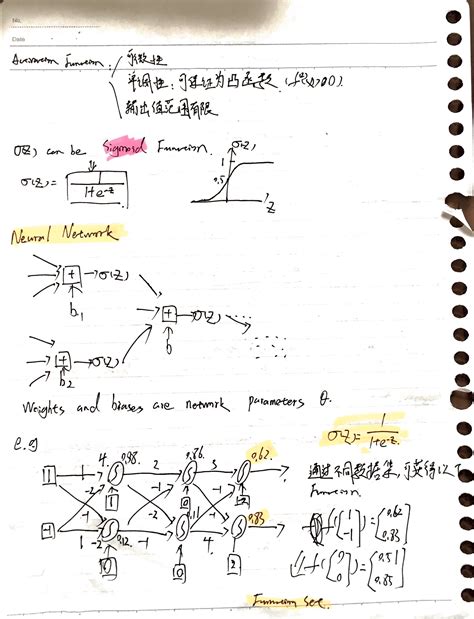 No.
Date
Activation Function: 可微性
单调性: 可保证为凸函数 (f''(x)>0)
输出值范围有限
σ(z) can be Sigmoid Function.
σ(z) = 1/(1+e^-z)
σ(z)
1
0.5
z
Neural Network
+ → σ(z)
b1
+ → σ(z)
b
+ → σ(z)
b2
Weights and biases are network parameters θ.
σ(z) = 1/(1+e^-z)
e.g
1 1 4. 0.98. 2 0.86. 3 0.62.
-2 -1 -1
1 0 -2
-1 1 -2 0.12. -1 0.11 4. 0.83
0 0 2
通过不同数据集, 可获得以下
Function.
f([1 -1]) = [0.62 0.83]
f([0 0]) = [0.51 0.85]
Function set.